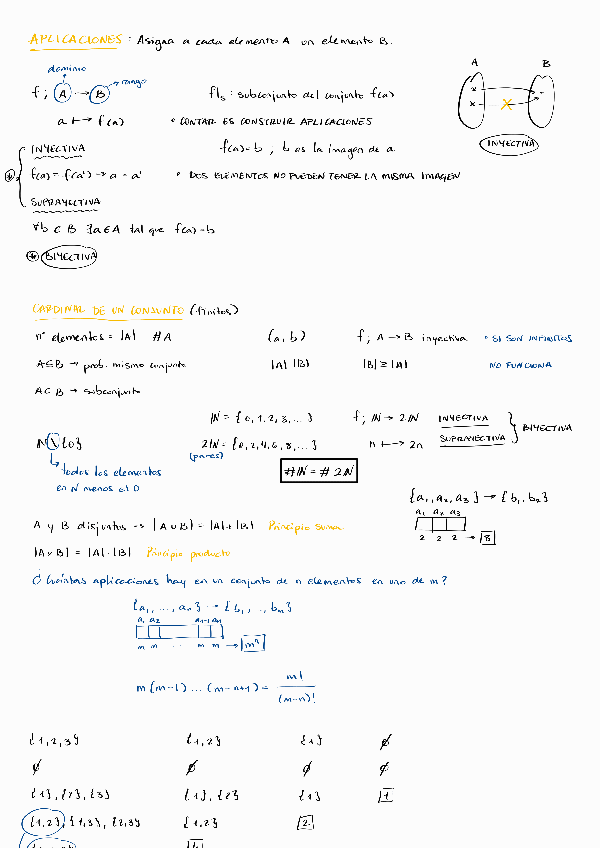 APLICACIONES : Asigna a cada elemento A un elemento B.
dominio
rango
f; A → B
f|s : subconjunto del conjunto f(a)
A B
a ↦ f(a)
• CONTAR ES CONSTRUIR APLICACIONES
INYECTIVA
INYECTIVA
f(a) = b , b es la imagen de a.
f(a) = f(a') → a = a'
• DOS ELEMENTOS NO PUEDEN TENER LA MISMA IMAGEN
SUPRAYECTIVA
∀b ∈ B ∃a∈A tal que f(a)=b
* BIYECTIVA
CARDINAL DE UN CONJUNTO (finitos)
nº elementos = |A| #A (a, b) f; A → B inyectiva • SI SON INFINITOS
A⊆B → prob. mismo conjunto |A| |B| |B| ≥ |A| NO FUNCIONA
A⊂B → subconjunto
ℕ = {0, 1, 2, 3, ...} f; ℕ → 2ℕ INYECTIVA
BIYECTIVA
ℕ\{0} 2ℕ = {0, 2, 4, 6, 8, ...} n ↦ 2n SUPRAYECTIVA
(pares)
todos los elementos
en ℕ menos el 0
#ℕ = # 2ℕ
{a₁, a₂, a₃} → {b₁, b₂}
a₁ a₂ a₃
A y B disjuntos → |A∪B| = |A|+|B| Principio suma
2 2 2 → 8
|A×B| = |A|·|B| Principio producto
¿Cuántas aplicaciones hay en un conjunto de n elementos en uno de m?
{a₁, ..., aₙ} → {b₁, ..., bₘ}
a₁ a₂ aₙ₋₁ aₙ
m m ... m m → mⁿ
m(m-1) ... (m-n+1) = m! / (m-n)!
{1,2,3} {1,2} {1} ∅
∅ ∅ ∅ ∅
{1}, {2}, {3} {1}, {2} {1} 1
{1,2}, {1,3}, {2,3} {1,2} 2